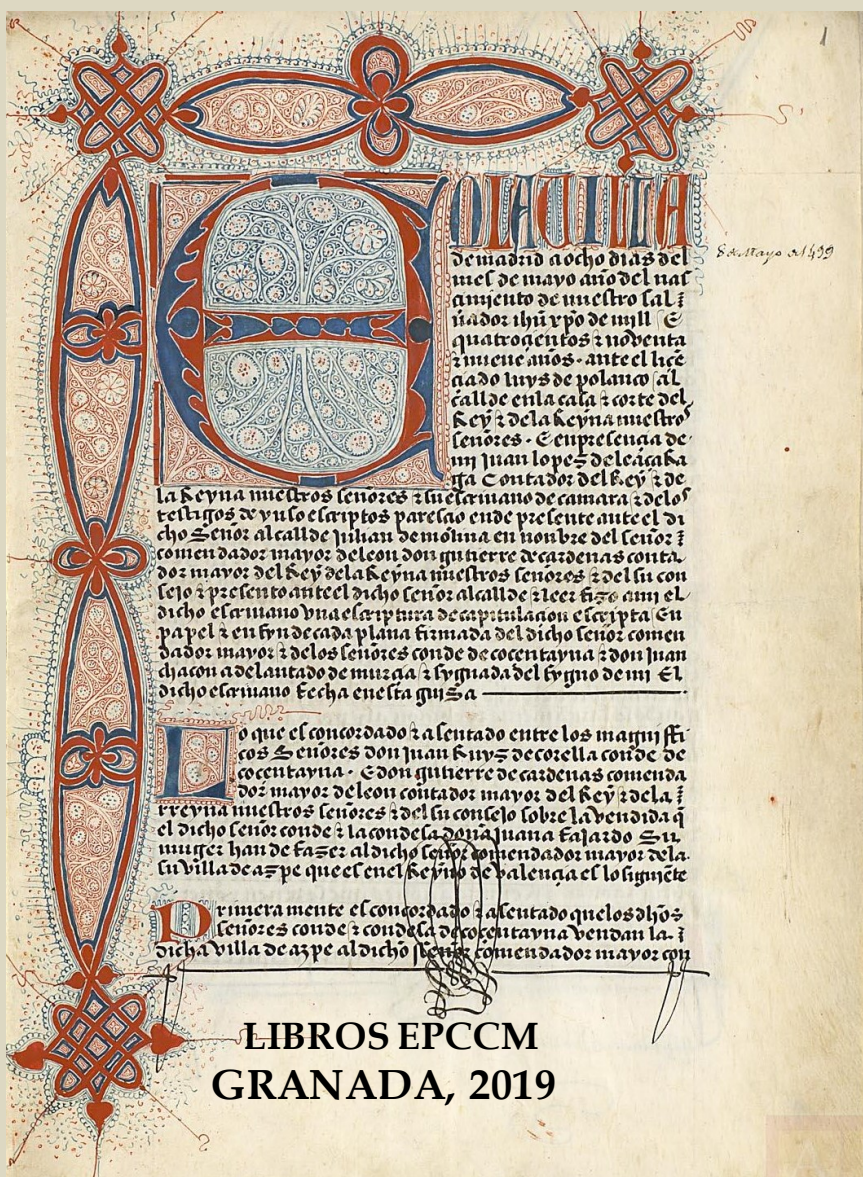 1
EN LA VILLA
8 de Mayo de 1499
de madrid a ocho dias del
mes de mayo año del nas
çimiento de nuestro sal
uador ihũ xp̃o de mill E
quatroçientos ⁊ nouenta
⁊ nueue años · ante el liçẽ
çiado luys de polanco al
callde en la casa ⁊ corte del
Rey ⁊ de la Reyna nuestros
señores · E en presençia de
mi juan lopez de leaçaRa
ga Contador del Rey ⁊ de
la Reyna nuestros señores ⁊ su escriuano de camara ⁊ delos
testigos de yuso escriptos paresçio ende presente ante el di
cho Señor alcallde julian de molina en nonbre del señor
comendador mayor de leon don gutierre de cardenas conta
dor mayor del Rey de la Reyna nuestros señores ⁊ del su con
sejo ⁊ presento ante el dicho señor alcallde ⁊ leer fizo ami el
dicho escriuano vna escriptura de capitulaçion escripta En
papel ⁊ en fyn de cada plana firmada del dicho señor comen
dador mayor ⁊ delos señores conde de cocentayna ⁊ don juan
chacon adelantado de murçia ⁊ sygnada del sygno de mi El
dicho escriuano fecha en esta guisa
Lo que es concordado ⁊ asentado entre los magnifi
cos Señores don juan Ruyz de corella conde de
cocentayna · E don gutierre de cardenas comenda
dor mayor de leon contador mayor del Rey ⁊ de la
rreyna nuestros señores ⁊ del su consejo sobre la vendida q̃
el dicho señor conde ⁊ la condesa doña juana fajardo Su
muger han de fazer al dicho señor comendador mayor dela
su villa de azpe que es en el Reyno de valençia es lo siguiẽte
Primera mente es concordado ⁊ asentado quelos dhos
señores conde ⁊ condesa de cocentayna vendan la
dicha villa de azpe al dicho señor comendador mayor con
LIBROS EPCCM
GRANADA, 2019